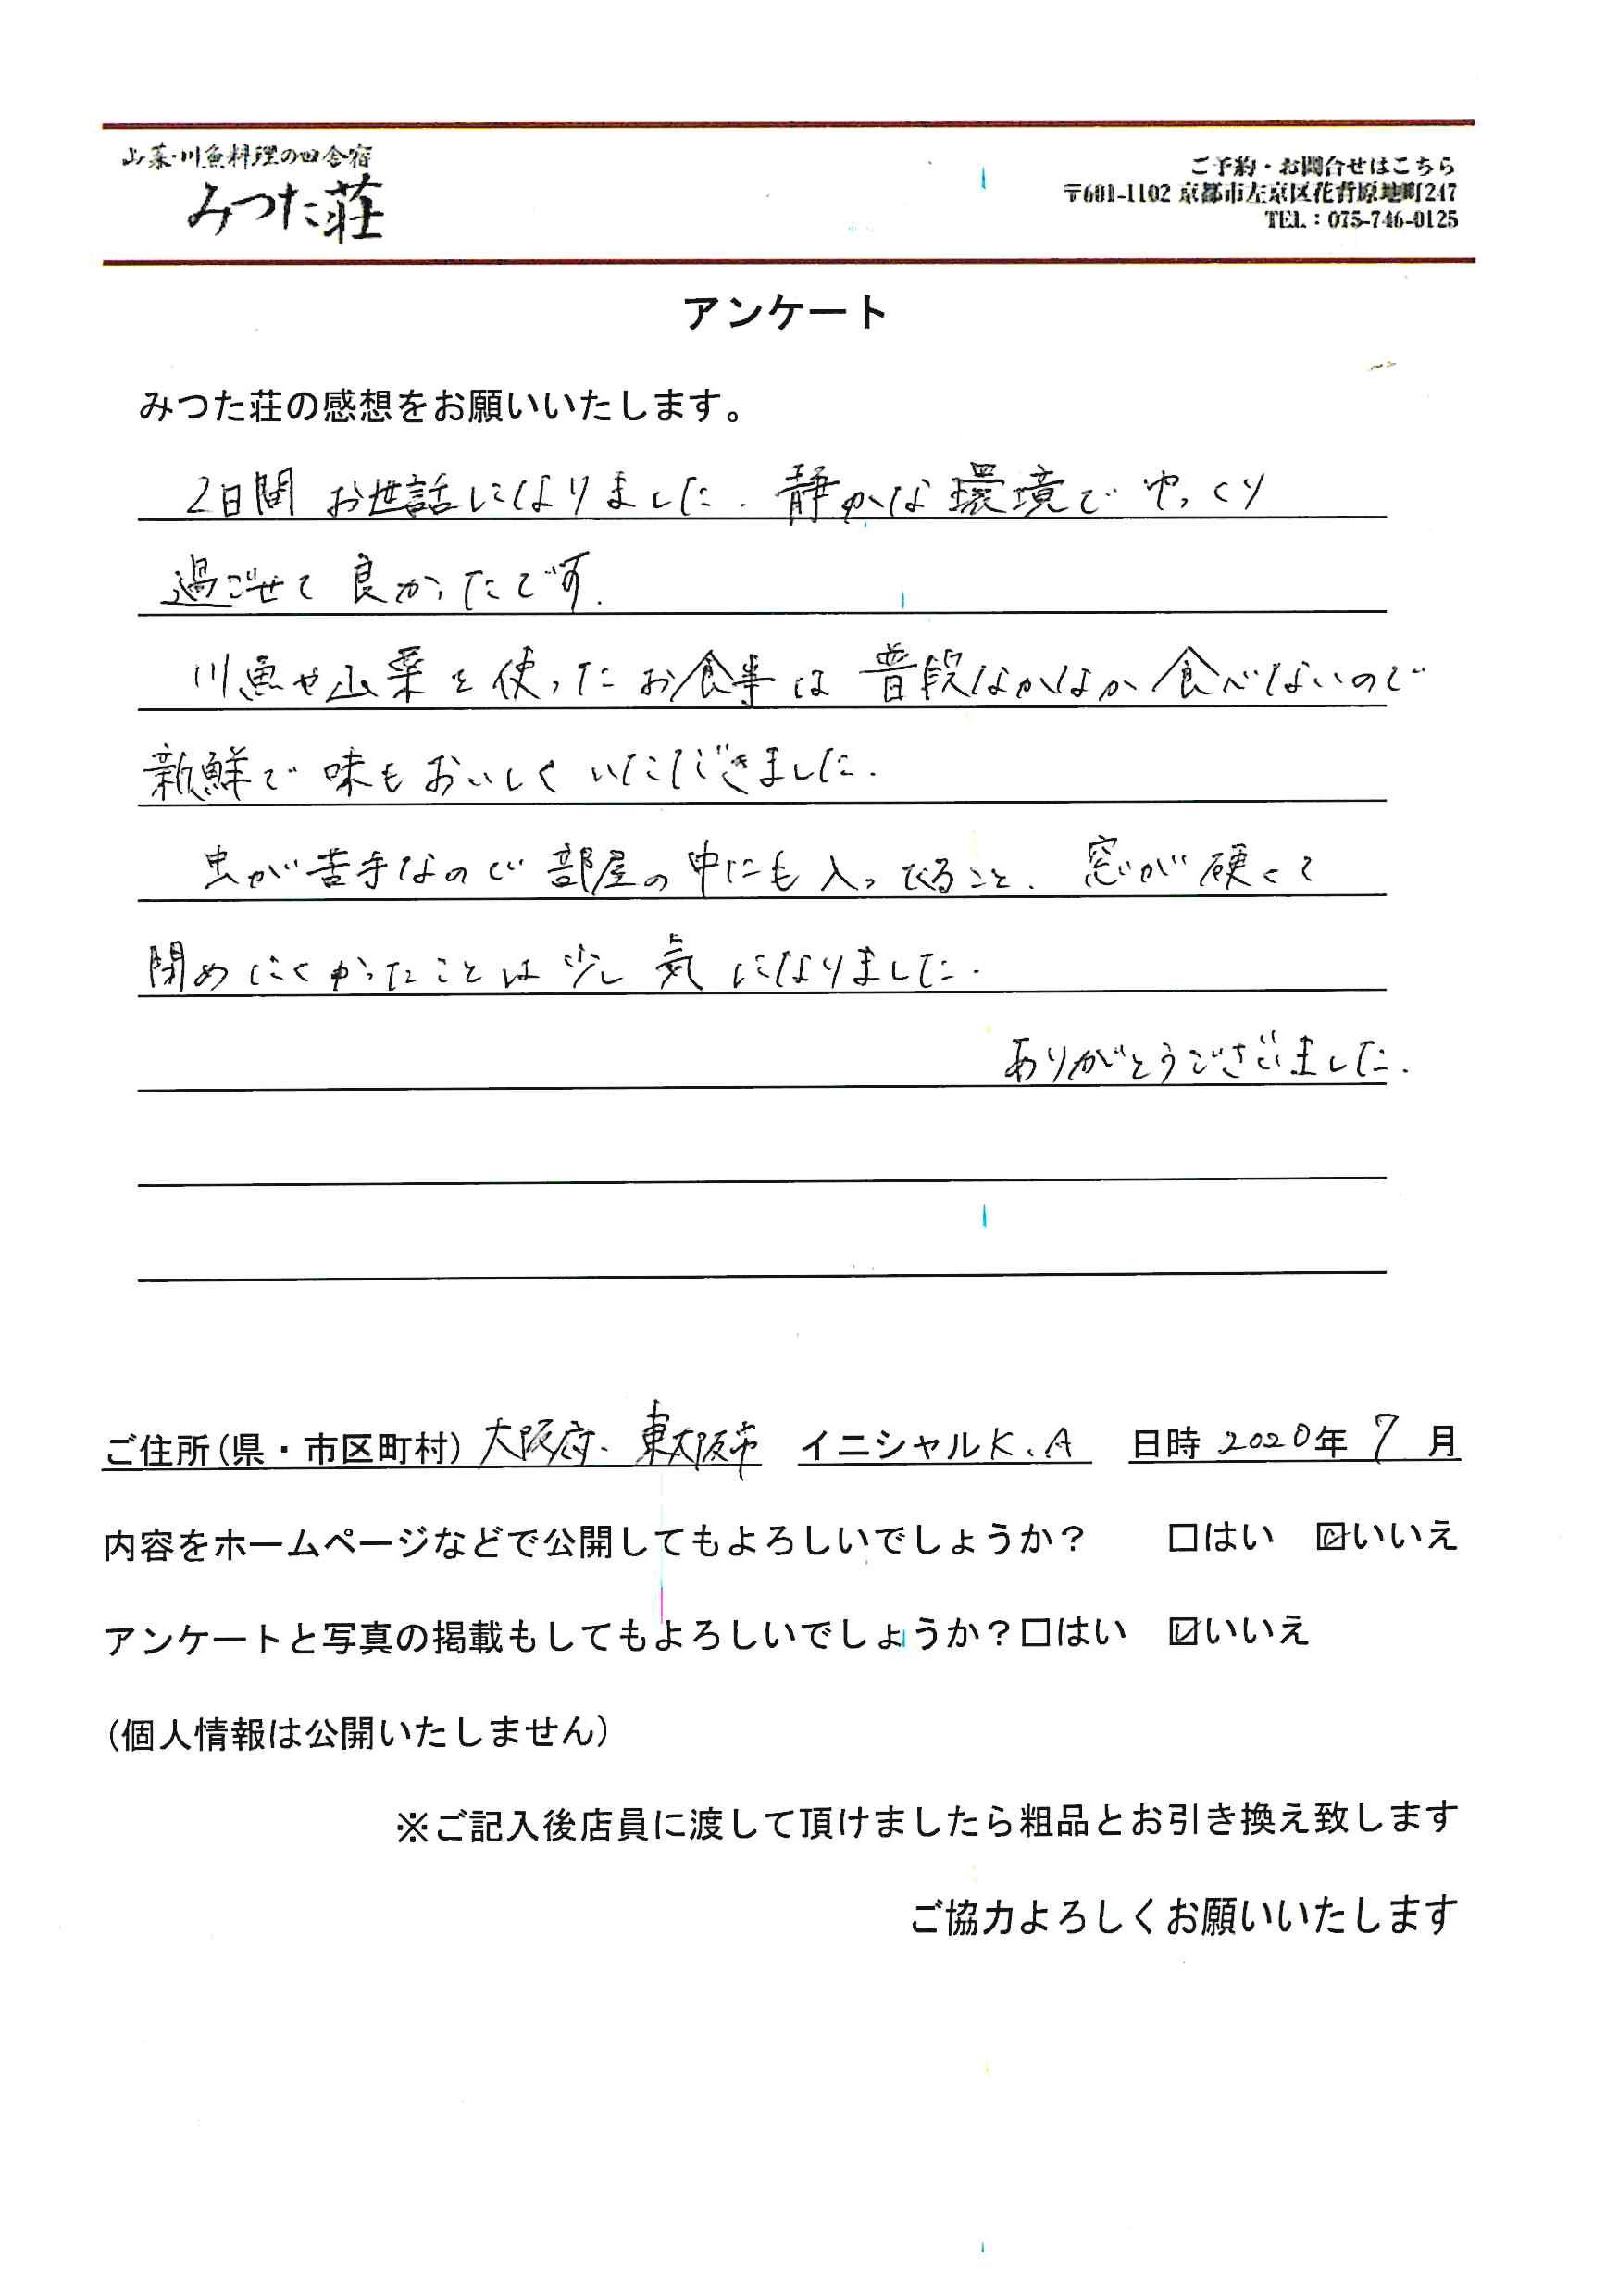 山菜・川魚料理の田舎宿
みつた荘
ご予約・お問合せはこちら
〒601-1102 京都市左京区花背原地町247
TEL：075-746-0125
アンケート
みつた荘の感想をお願いいたします。
2日間 お世話になりました. 静かな環境で ゆっくり
過ごせて 良かったです.
川魚や山菜を使ったお食事は 普段なかなか食べないので
新鮮で 味も おいしく いただきました.
虫が苦手なので 部屋の中にも入ってくること、窓が硬くて
閉めにくかったことは少し気になりました.
ありがとうございました.
ご住所(県・市区町村) 大阪府、東大阪市 イニシャル K.A 日時 2020年 7 月
内容をホームページなどで公開してもよろしいでしょうか？ □はい ☑いいえ
アンケートと写真の掲載もしてもよろしいでしょうか？□はい ☑いいえ
(個人情報は公開いたしません)
※ご記入後店員に渡して頂けましたら粗品とお引き換え致します
ご協力よろしくお願いいたします